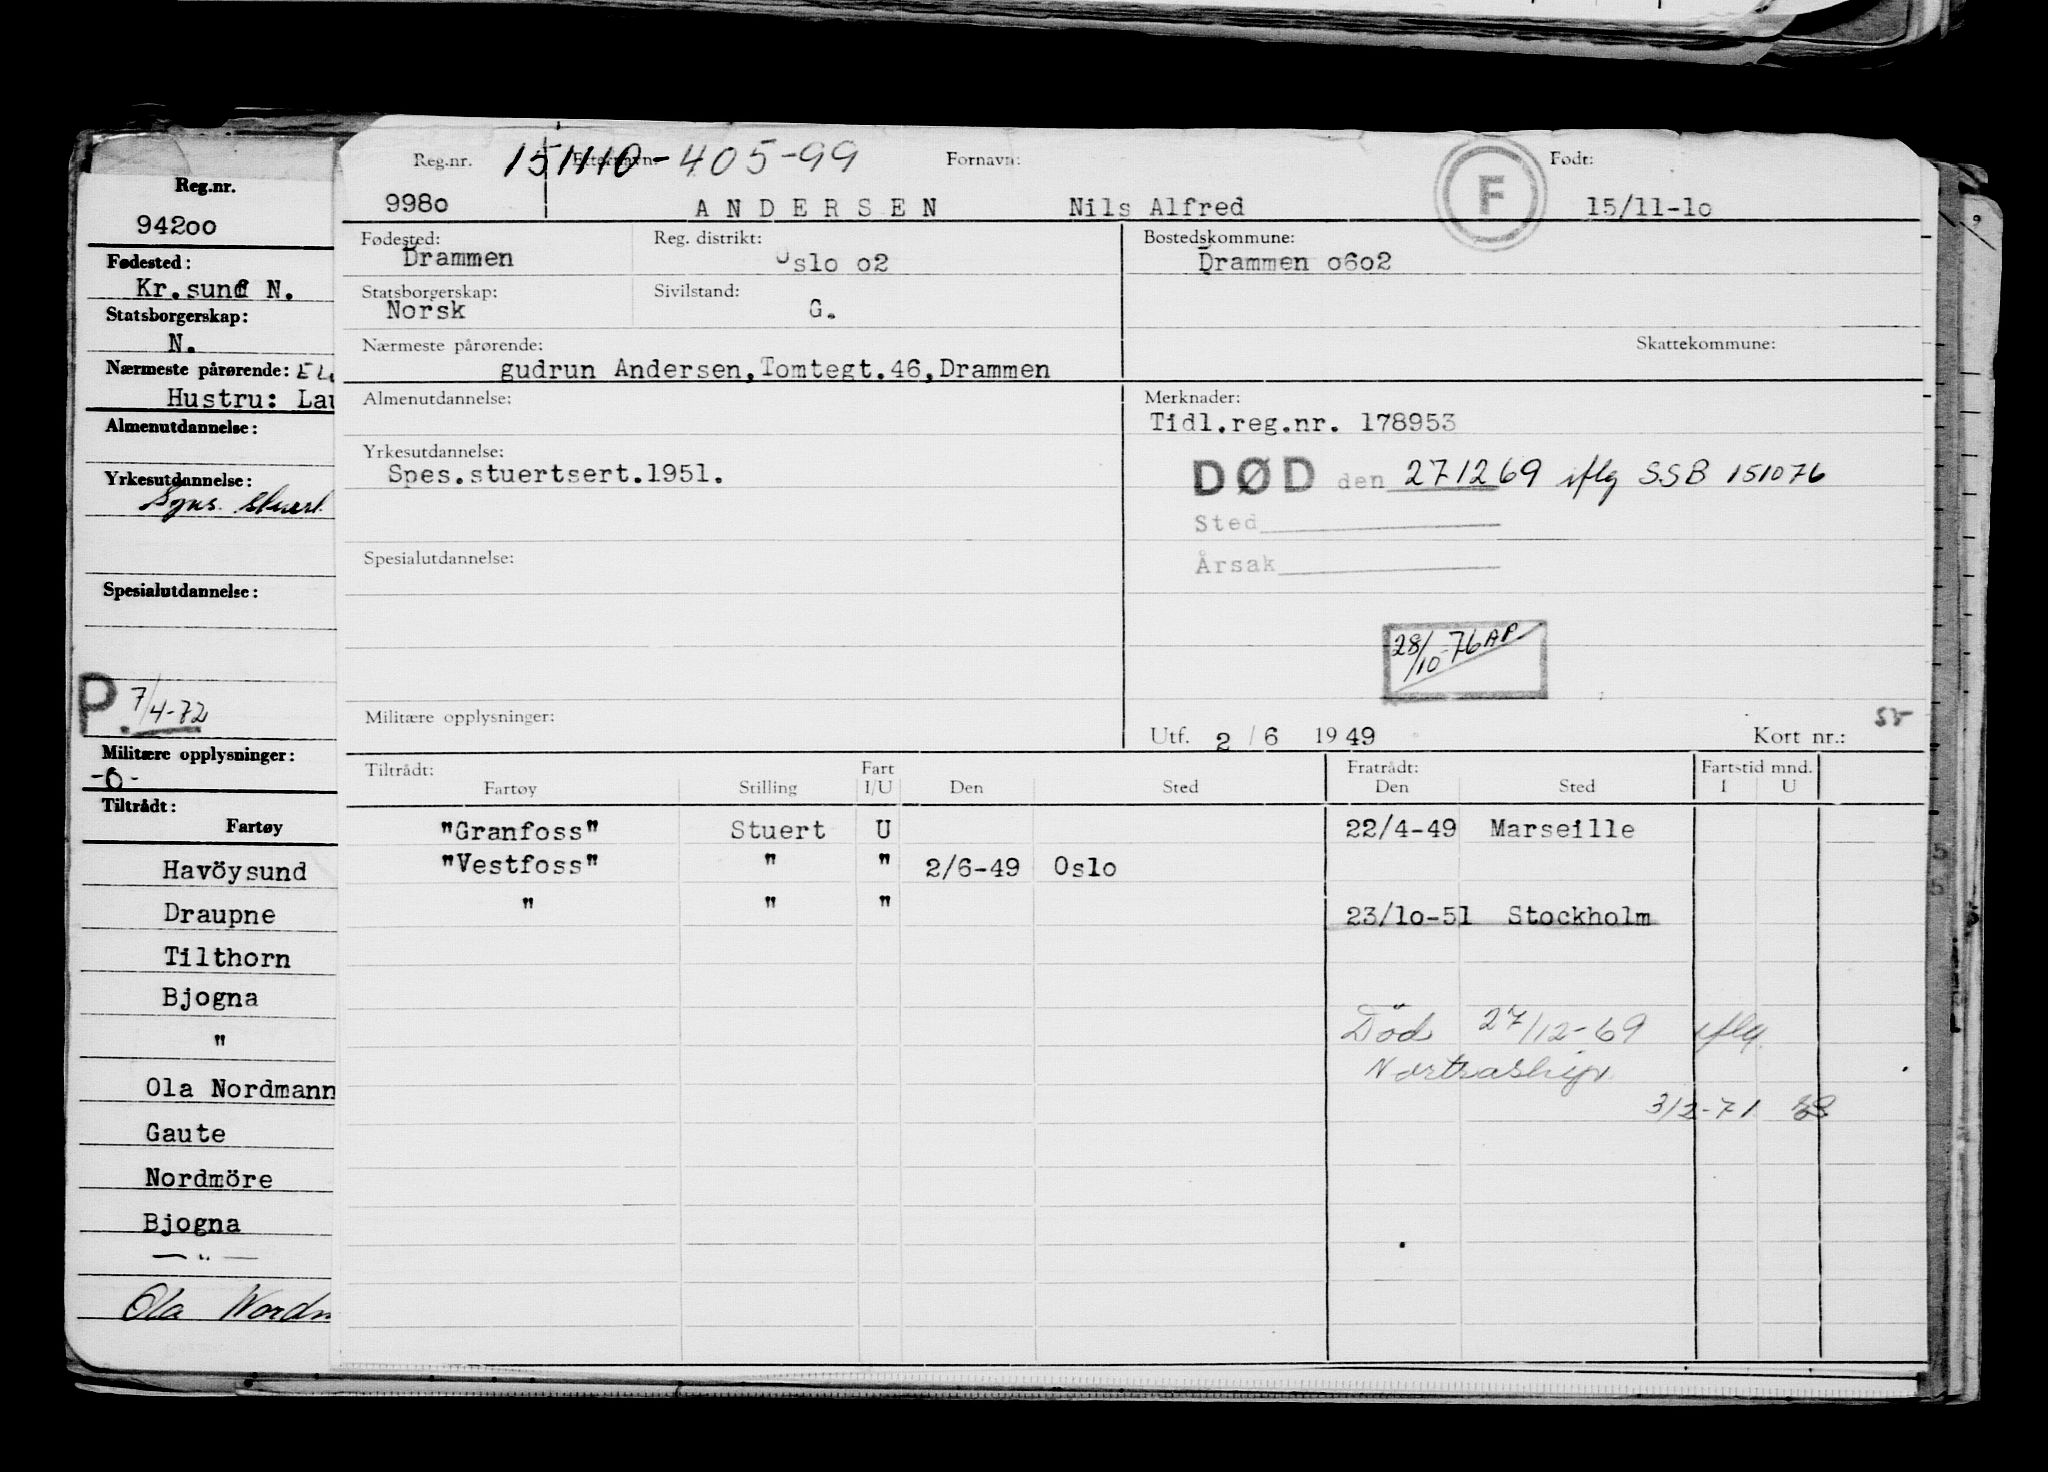 Reg.nr.
94200
Fødested:
Kr.sund N.
Statsborgerskap:
N.
Nærmeste pårørende:
Hustru: Lau
Almenutdannelse:
Yrkesutdannelse:
Stuert
Spesialutdannelse:
P. 7/4-72
Militære opplysninger:
-0-
Tiltrådt:
Fartøy
Havöysund
Draupne
Tilthorn
Bjogna
"
Ola Nordmann
Gaute
Nordmöre
Bjogna
— " —
Ola Nordm
Reg.nr. 151110-405-99 Etternavn: Fornavn: F Født:
9980 ANDERSEN Nils Alfred 15/11-10
Fødested: Reg. distrikt: Bostedskommune:
Drammen Oslo 02 Drammen 0602
Statsborgerskap: Sivilstand:
Norsk G.
Nærmeste pårørende: Skattekommune:
gudrun Andersen,Tomtegt.46,Drammen
Almenutdannelse: Merknader:
Tidl.reg.nr. 178953
Yrkesutdannelse:
Spes.stuertsert.1951. DØD den 271269 iflg SSB 151076
Sted
Spesialutdannelse: Årsak
28/10-76 AP
Militære opplysninger: 55
Utf. 2 / 6 1949 Kort nr.:
Tiltrådt: Fart Fratrådt: Fartstid mnd.
Fartøy Stilling I/U Den Sted Den Sted I U
"Granfoss" Stuert U 22/4-49 Marseille
"Vestfoss" " " 2/6-49 Oslo
" " " 23/10-51 Stockholm
Död 27/12-69 iflg.
Nortraship
3/2-71